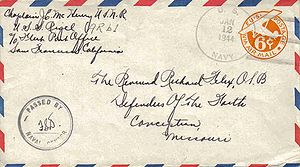 Chaplain J. E. McHenry U.S.N.R
U.S.S. Rigel
c/o Fleet Post Office
San Francisco California
U.S.
JAN
12
1944
NAVY
AIR MAIL
6¢
The Reverend Richard Felix, O.S.B
Defenders of the Faith
Conception
Missouri
PASSED BY
NAVAL CENSOR